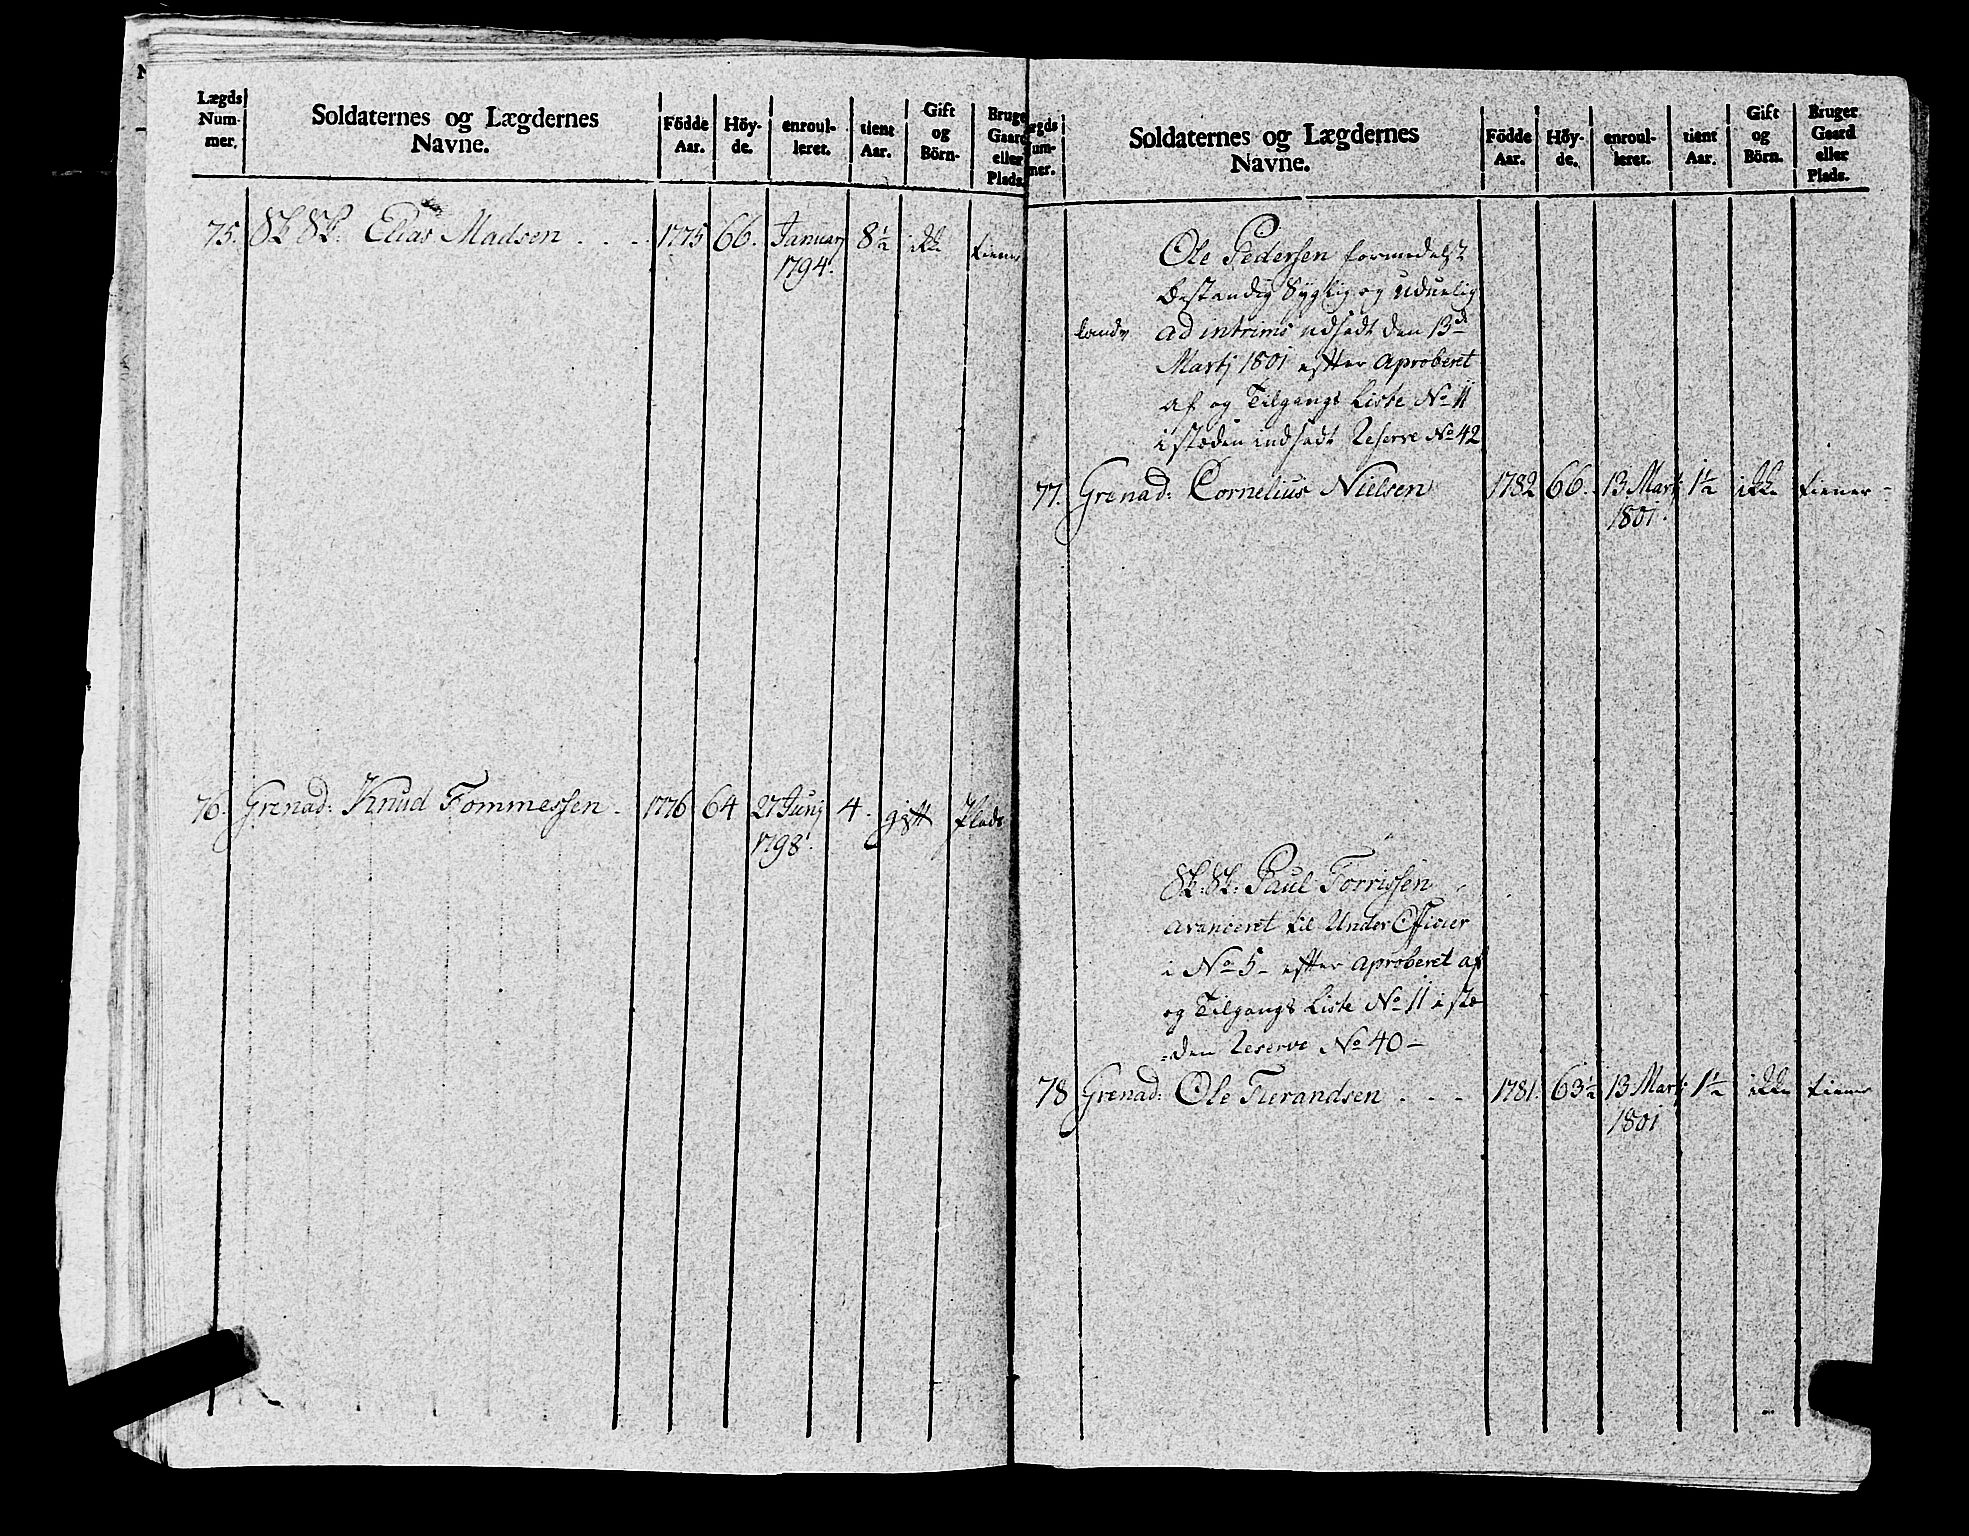 Lægds Num- mer. Soldaternes og Lægdernes Navne. Födde Aar. Höy- de. enroul- leret. tient Aar. Gift og Börn. Bruge Gaard eller Plads.
75. Sk: Sk: Elias Madsen . . . 1775 66. Januarj 8½ ikke tiener
1794.
76. Grenad: Knud Tommessen . 1776 64 27 Junj 4. gift Plads
1798.
ægds um- ner. Soldaternes og Lægdernes Navne. Födde Aar. Höy- de. enroul- leret. tient Aar. Gift og Börn. Bruger Gaard eller Plads.
Ole Pedersen formedelst
bestandig Syglig og uduelig
ad intrims udsadt den 13de
Martj 1801 efter aproberet
af og Tilgangs Liste No 11
i stæden indsadt Reserve No 42
77. Grenad: Cornelius Nielsen 1782 66. 13 Martj 1½ ikke tiener -
1801.
Sk: Sk: Paul Torrissen
avanceret til Under Officier
i No 5 - efter aproberet af
og Tilgangs Liste No 11 i stæ
=den Reserve No 40 -
78 Grenad: Ole Tierandsen . - - 1781. 63½ 13 Martj 1½ ikke tiener
1801